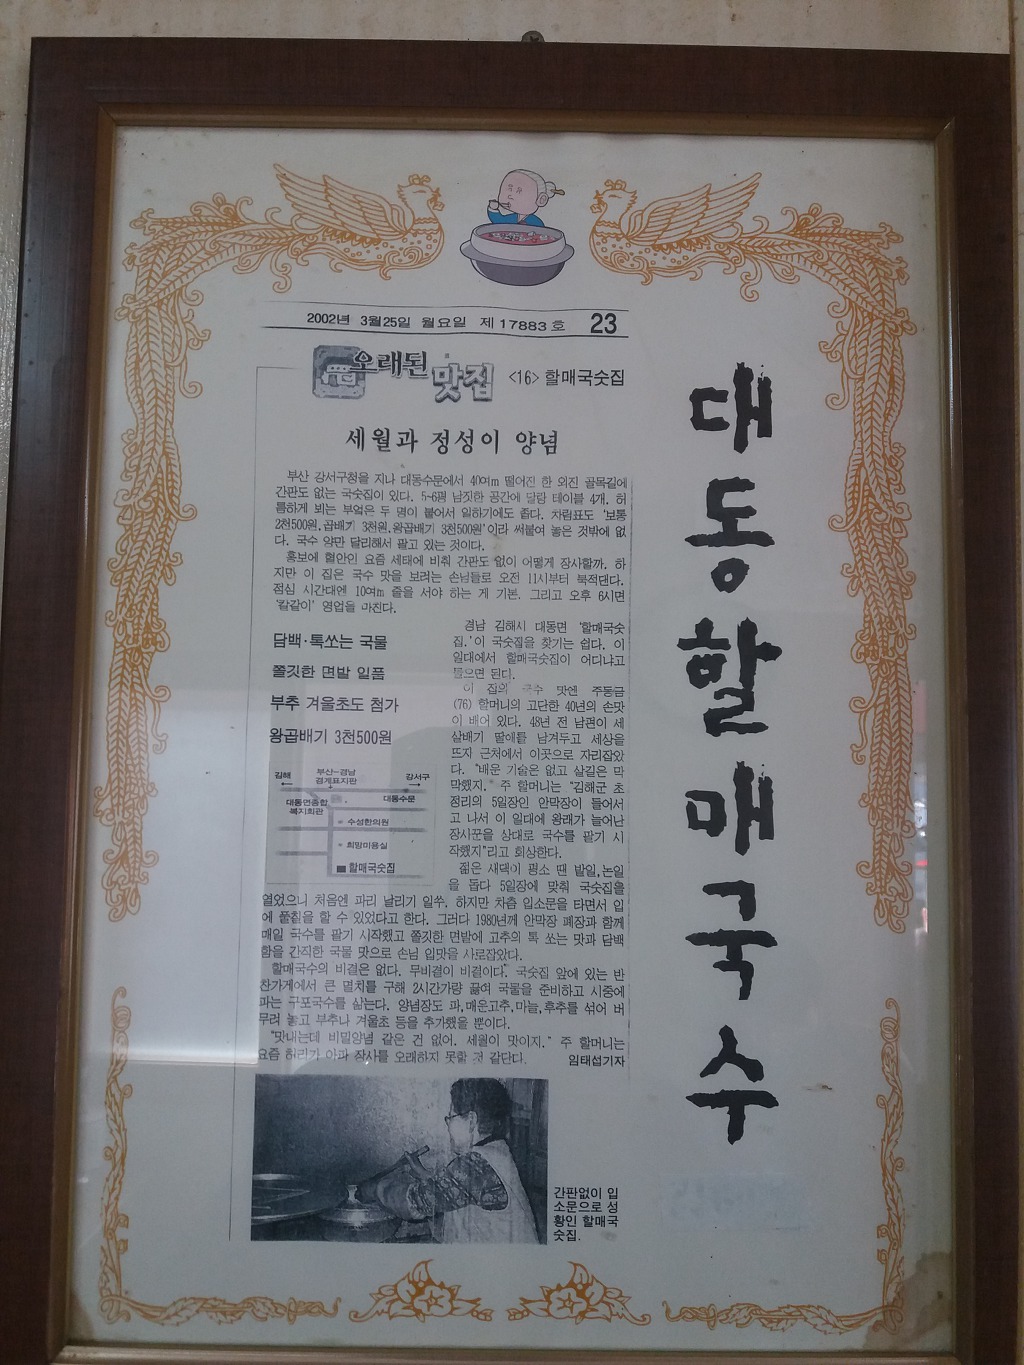 2002년 3월25일 월요일 제17883호 23
오래된 맛집 <16> 할매국숫집
세월과 정성이 양념
부산 강서구청을 지나 대동수문에서 40여m 떨어진 한 외진 골목길에
간판도 없는 국숫집이 있다. 5~6평 남짓한 공간에 달랑 테이블 4개. 허
름하게 뵈는 부엌은 두 명이 붙어서 일하기에도 좁다. 차림표도 '보통
2천500원, 곱배기 3천원, 왕곱배기 3천500원'이라 써붙여 놓은 것밖에 없
다. 국수 양만 달리해서 팔고 있는 것이다.
홍보에 혈안인 요즘 세태에 비춰 간판도 없이 어떻게 장사할까. 하
지만 이 집은 국수 맛을 보려는 손님들로 오전 11시부터 북적댄다.
점심 시간대엔 10여m 줄을 서야 하는 게 기본. 그리고 오후 6시면
'칼같이' 영업을 마친다.
담백·톡쏘는 국물
쫄깃한 면발 일품
부추 겨울초도 첨가
왕곱배기 3천500원
김해
부산-경남
경계표지판
강서구
대동연종합
복지회관
대동수문
수성한의원
희망미용실
할매국숫집
경남 김해시 대동면 '할매국숫
집.' 이 국숫집을 찾기는 쉽다. 이
일대에서 할매국숫집이 어디냐고
물으면 된다.
이 집의 국수 맛엔 주동금
(76) 할머니의 고단한 40년의 손맛
이 배어 있다. 48년 전 남편이 세
살배기 딸애를 남겨두고 세상을
뜨자 근처에서 이곳으로 자리잡았
다. "배운 기술은 없고 살길은 막
막했지." 주 할머니는 "김해군 초
정리의 5일장인 안막장이 들어서
고 나서 이 일대에 왕래가 늘어난
장시꾼을 상대로 국수를 팔기 시
작했지"라고 회상한다.
젊은 새댁이 평소 땐 밭일, 논일
을 돕다 5일장에 맞춰 국숫집을
열었으니 처음엔 파리 날리기 일쑤. 하지만 차츰 입소문을 타면서 입
에 풀칠을 할 수 있었다고 한다. 그러다 1980년께 안막장 폐장과 함께
매일 국수를 팔기 시작했고 쫄깃한 면발에 고추의 톡 쏘는 맛과 담백
함을 간직한 국물 맛으로 손님 입맛을 사로잡았다.
할매국수의 비결은 없다. 무비결이 비결이다. 국숫집 앞에 있는 반
찬가게에서 큰 멸치를 구해 2시간가량 끓여 국물을 준비하고 시중에
파는 구포국수를 삶는다. 양념장도 파, 매운고추, 마늘, 후추를 섞어 버
무려 놓고 부추나 겨울초 등을 추가했을 뿐이다.
"맛내는데 비밀양념 같은 건 없어. 세월이 맛이지." 주 할머니는
요즘 허리가 아파 장사를 오래하지 못할 것 같단다. 임태섭기자
간판없이 입
소문으로 성
황인 할매국
숫집.
대동할매국수